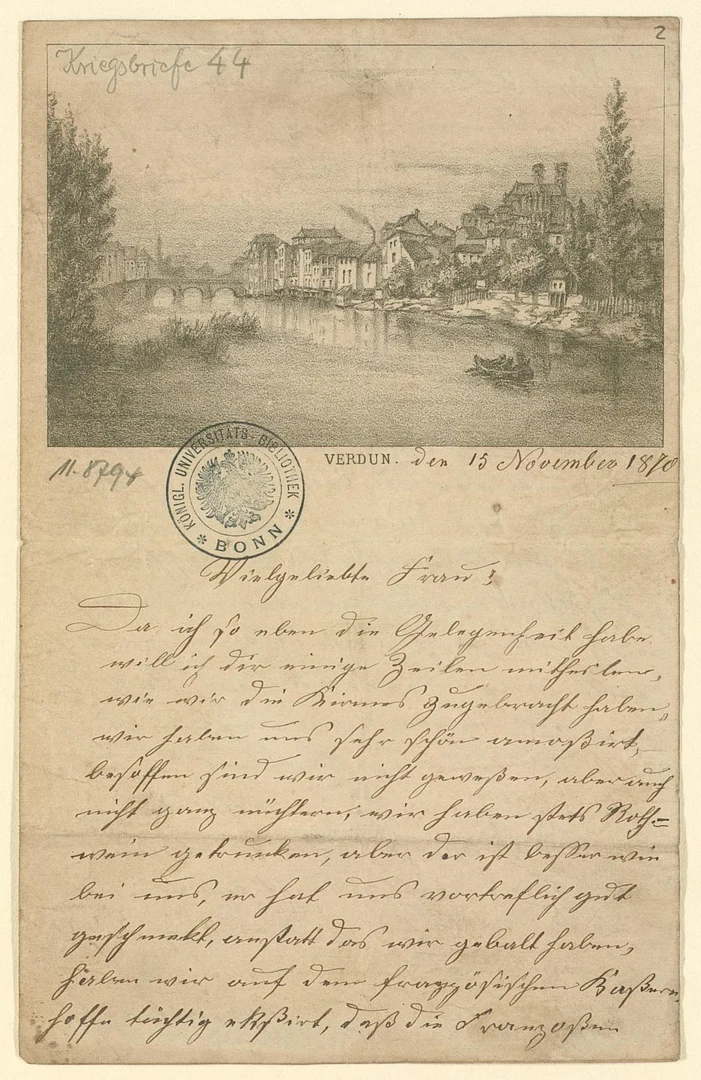 2
Kriegsbriefe 44
VERDUN. den 15 November 1870
KÖNIGL. UNIVERSITÄTS-BIBLIOTHEK
* BONN *
Vielgeliebte Frau!
Da ich so eben die Gelegenheit habe
will ich dir einige Zeilen mitheilen,
wie wir die Kirmes zugebracht haben,
wir haben uns sehr schön amoßirt,
besoffen sind wir nicht geweßen, aber auch
nicht ganz nüchtern, wir haben stets Roth=
wein getrunken, aber der ist besser wie
bei uns, er hat uns vortreflich gut
geschmekt, anstatt das wir gebalt haben,
haben wir auf dem französischen Kaßern
hoffe tüchtig eksßirt, daß die Franzoßen